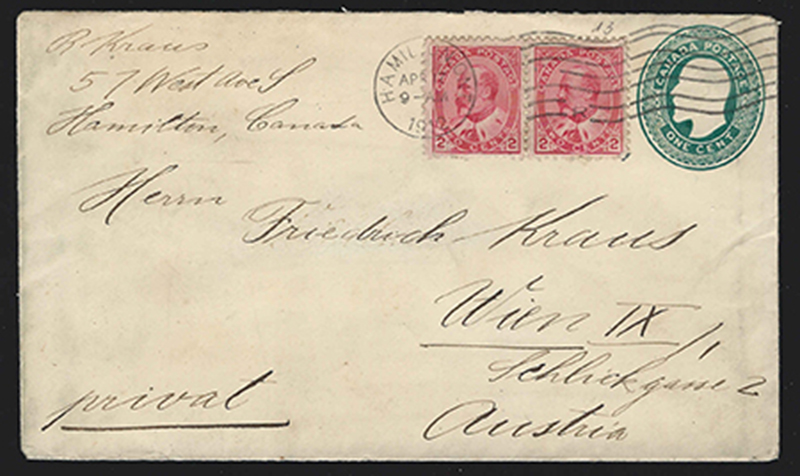 R Kraus
57 West Ave S
Hamilton, Canada
13
HAMIL
APR
9
19
CANADA POSTAGE
2 CENTS 2
CANADA POSTAGE
2 CENTS 2
CANADA POSTAGE
ONE CENT
Herrn
Friedrich Kraus
Wien IX/1
Schlickgasse 2
privat
Austria